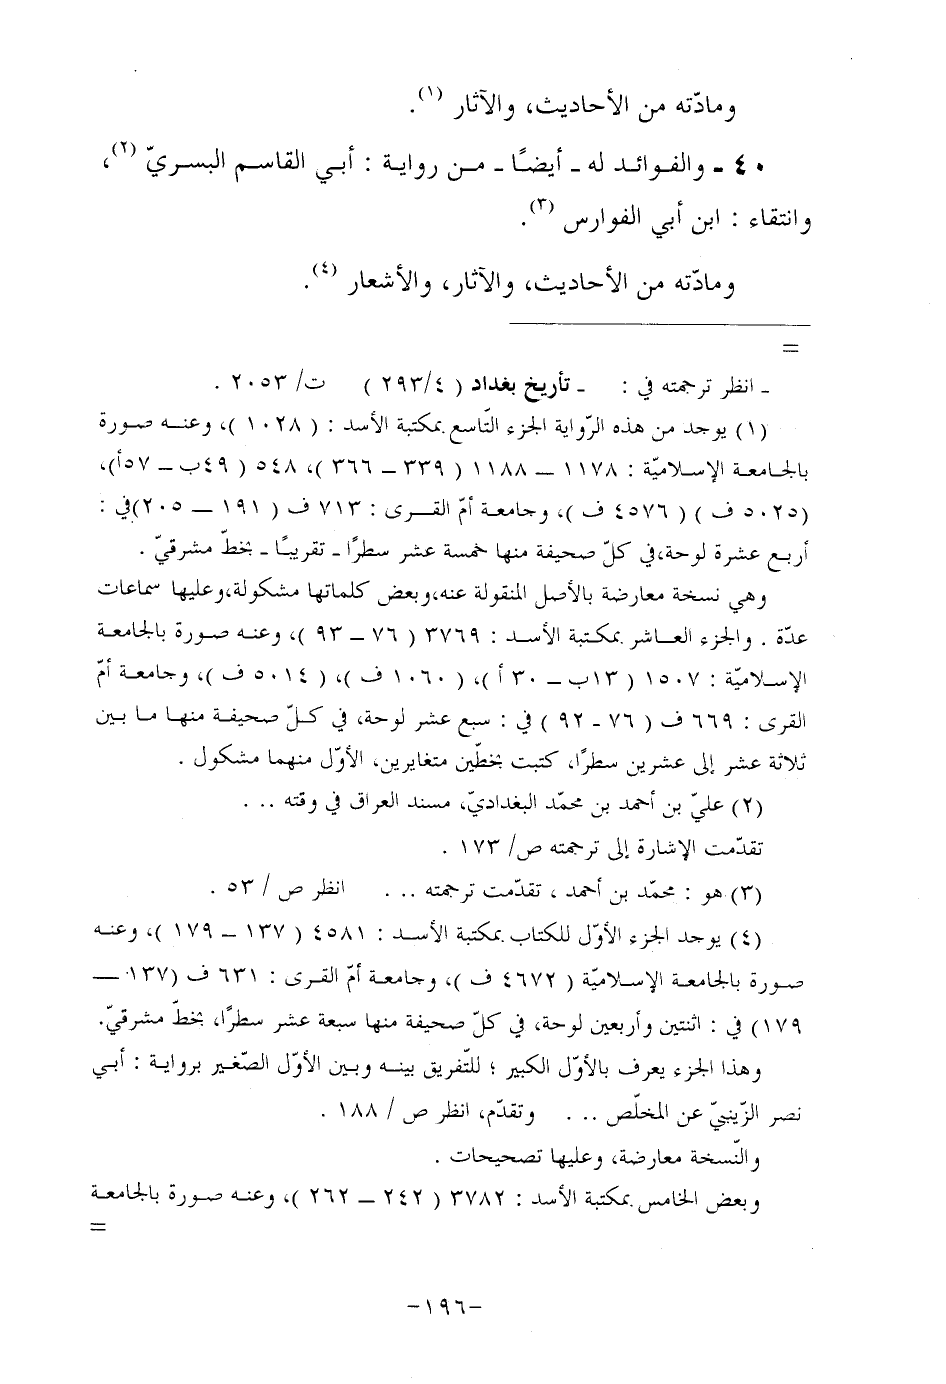 ومادّته من الأحاديث، والآثار (١).
٤٠ - والفوائد له - أيضًا - من رواية : أبي القاسم البسريّ (٢)،
وانتقاء : ابن أبي الفوارس (٣).
ومادّته من الأحاديث، والآثار، والأشعار (٤).
=
- انظر ترجمته في : - تأريخ بغداد ( ٢٩٣/٤ ) ت/ ٢٠٥٣ .
(١) يوجد من هذه الرّواية الجزء التّاسع بمكتبة الأسد : ( ١٠٢٨ )، وعنه صورة
بالجامعة الإسلاميّة : ١١٧٨ – ١١٨٨ ( ٣٣٩ – ٣٦٦ )، ٥٤٨ ( ٤٩ب – ٥٧أ)،
(٥٠٢٥ ف ) ( ٤٥٧٦ ف )، وجامعة أمّ القرى : ٧١٣ ف ( ١٩١ – ٢٠٥)في :
أربع عشرة لوحة،في كلّ صحيفة منها خمسة عشر سطرًا - تقريبًا - بخطّ مشرقيّ .
وهي نسخة معارضة بالأصل المنقولة عنه،وبعض كلماتها مشكولة،وعليها سماعات
عدّة . والجزء العاشر بمكتبة الأسد : ٣٧٦٩ ( ٧٦ – ٩٣ )، وعنه صورة بالجامعة
الإسلاميّة : ١٥٠٧ ( ١٣ب – ٣٠ أ )، ( ١٠٦٠ ف )، ( ٥٠١٤ ف )، وجامعة أمّ
القرى : ٦٦٩ ف ( ٧٦ - ٩٢ ) في : سبع عشر لوحة، في كلّ صحيفة منها ما بين
ثلاثة عشر إلى عشرين سطرًا، كتبت بخطّين متغايرين، الأوّل منهما مشكول .
(٢) عليّ بن أحمد بن محمّد البغداديّ، مسند العراق في وقته . . .
تقدّمت الإشارة إلى ترجمته ص/ ١٧٣ .
(٣) هو : محمّد بن أحمد ، تقدّمت ترجمته . . . انظر ص / ٥٣ .
(٤) يوجد الجزء الأوّل للكتاب بمكتبة الأسد : ٤٥٨١ ( ١٣٧ – ١٧٩ )، وعنه
صورة بالجامعة الإسلاميّة ( ٤٦٧٢ ف )، وجامعة أمّ القرى : ٦٣١ ف (١٣٧ –
١٧٩) في : اثنتين وأربعين لوحة، في كلّ صحيفة منها سبعة عشر سطرًا، بخطّ مشرقيّ.
وهذا الجزء يعرف بالأوّل الكبير ؛ للتّفريق بينه وبين الأوّل الصّغير برواية : أبي
نصر الزّينبيّ عن المخلّص . . . وتقدّم، انظر ص / ١٨٨ .
والنّسخة معارضة، وعليها تصحيحات .
وبعض الخامس بمكتبة الأسد : ٣٧٨٢ ( ٢٤٢ – ٢٦٢ )، وعنه صورة بالجامعة
=
-١٩٦-